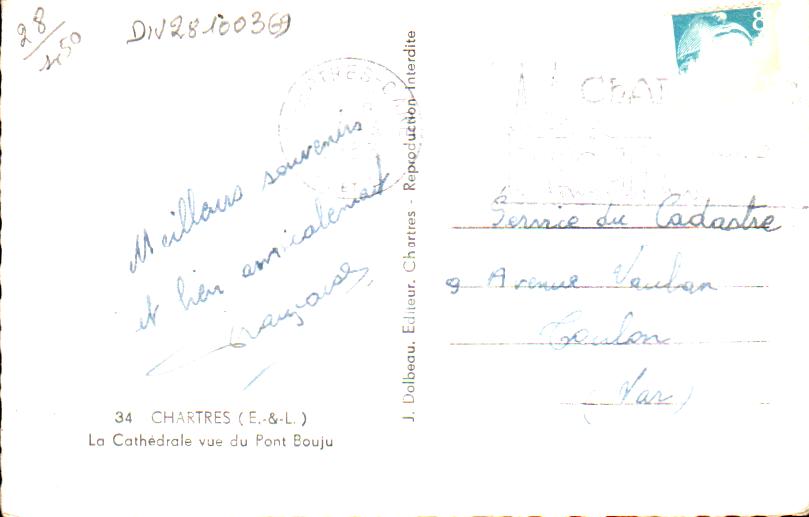 28/
DIV28100369
8
CHARTRES
Meilleurs souvenirs
et bien amicalement
Françoise
34 CHARTRES (E.-&-L.)
La Cathédrale vue du Pont Bouju
J. Dolbeau, Editeur, Chartres - Reproduction Interdite
Service du Cadastre
9 Avenue Vauban
Toulon
(Var)